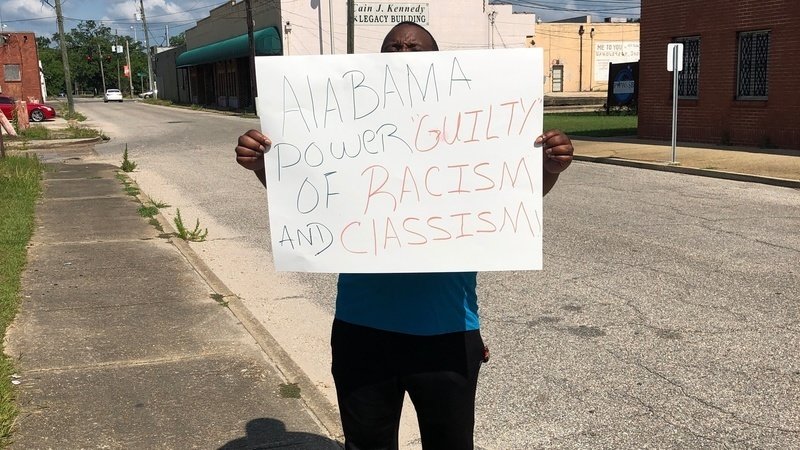 ain J. Kennedy
& LEGACY BUILDING
ME TO YOU
AlABAMA
POWER "GUILTY"
OF RACISM
AND ClASSISM